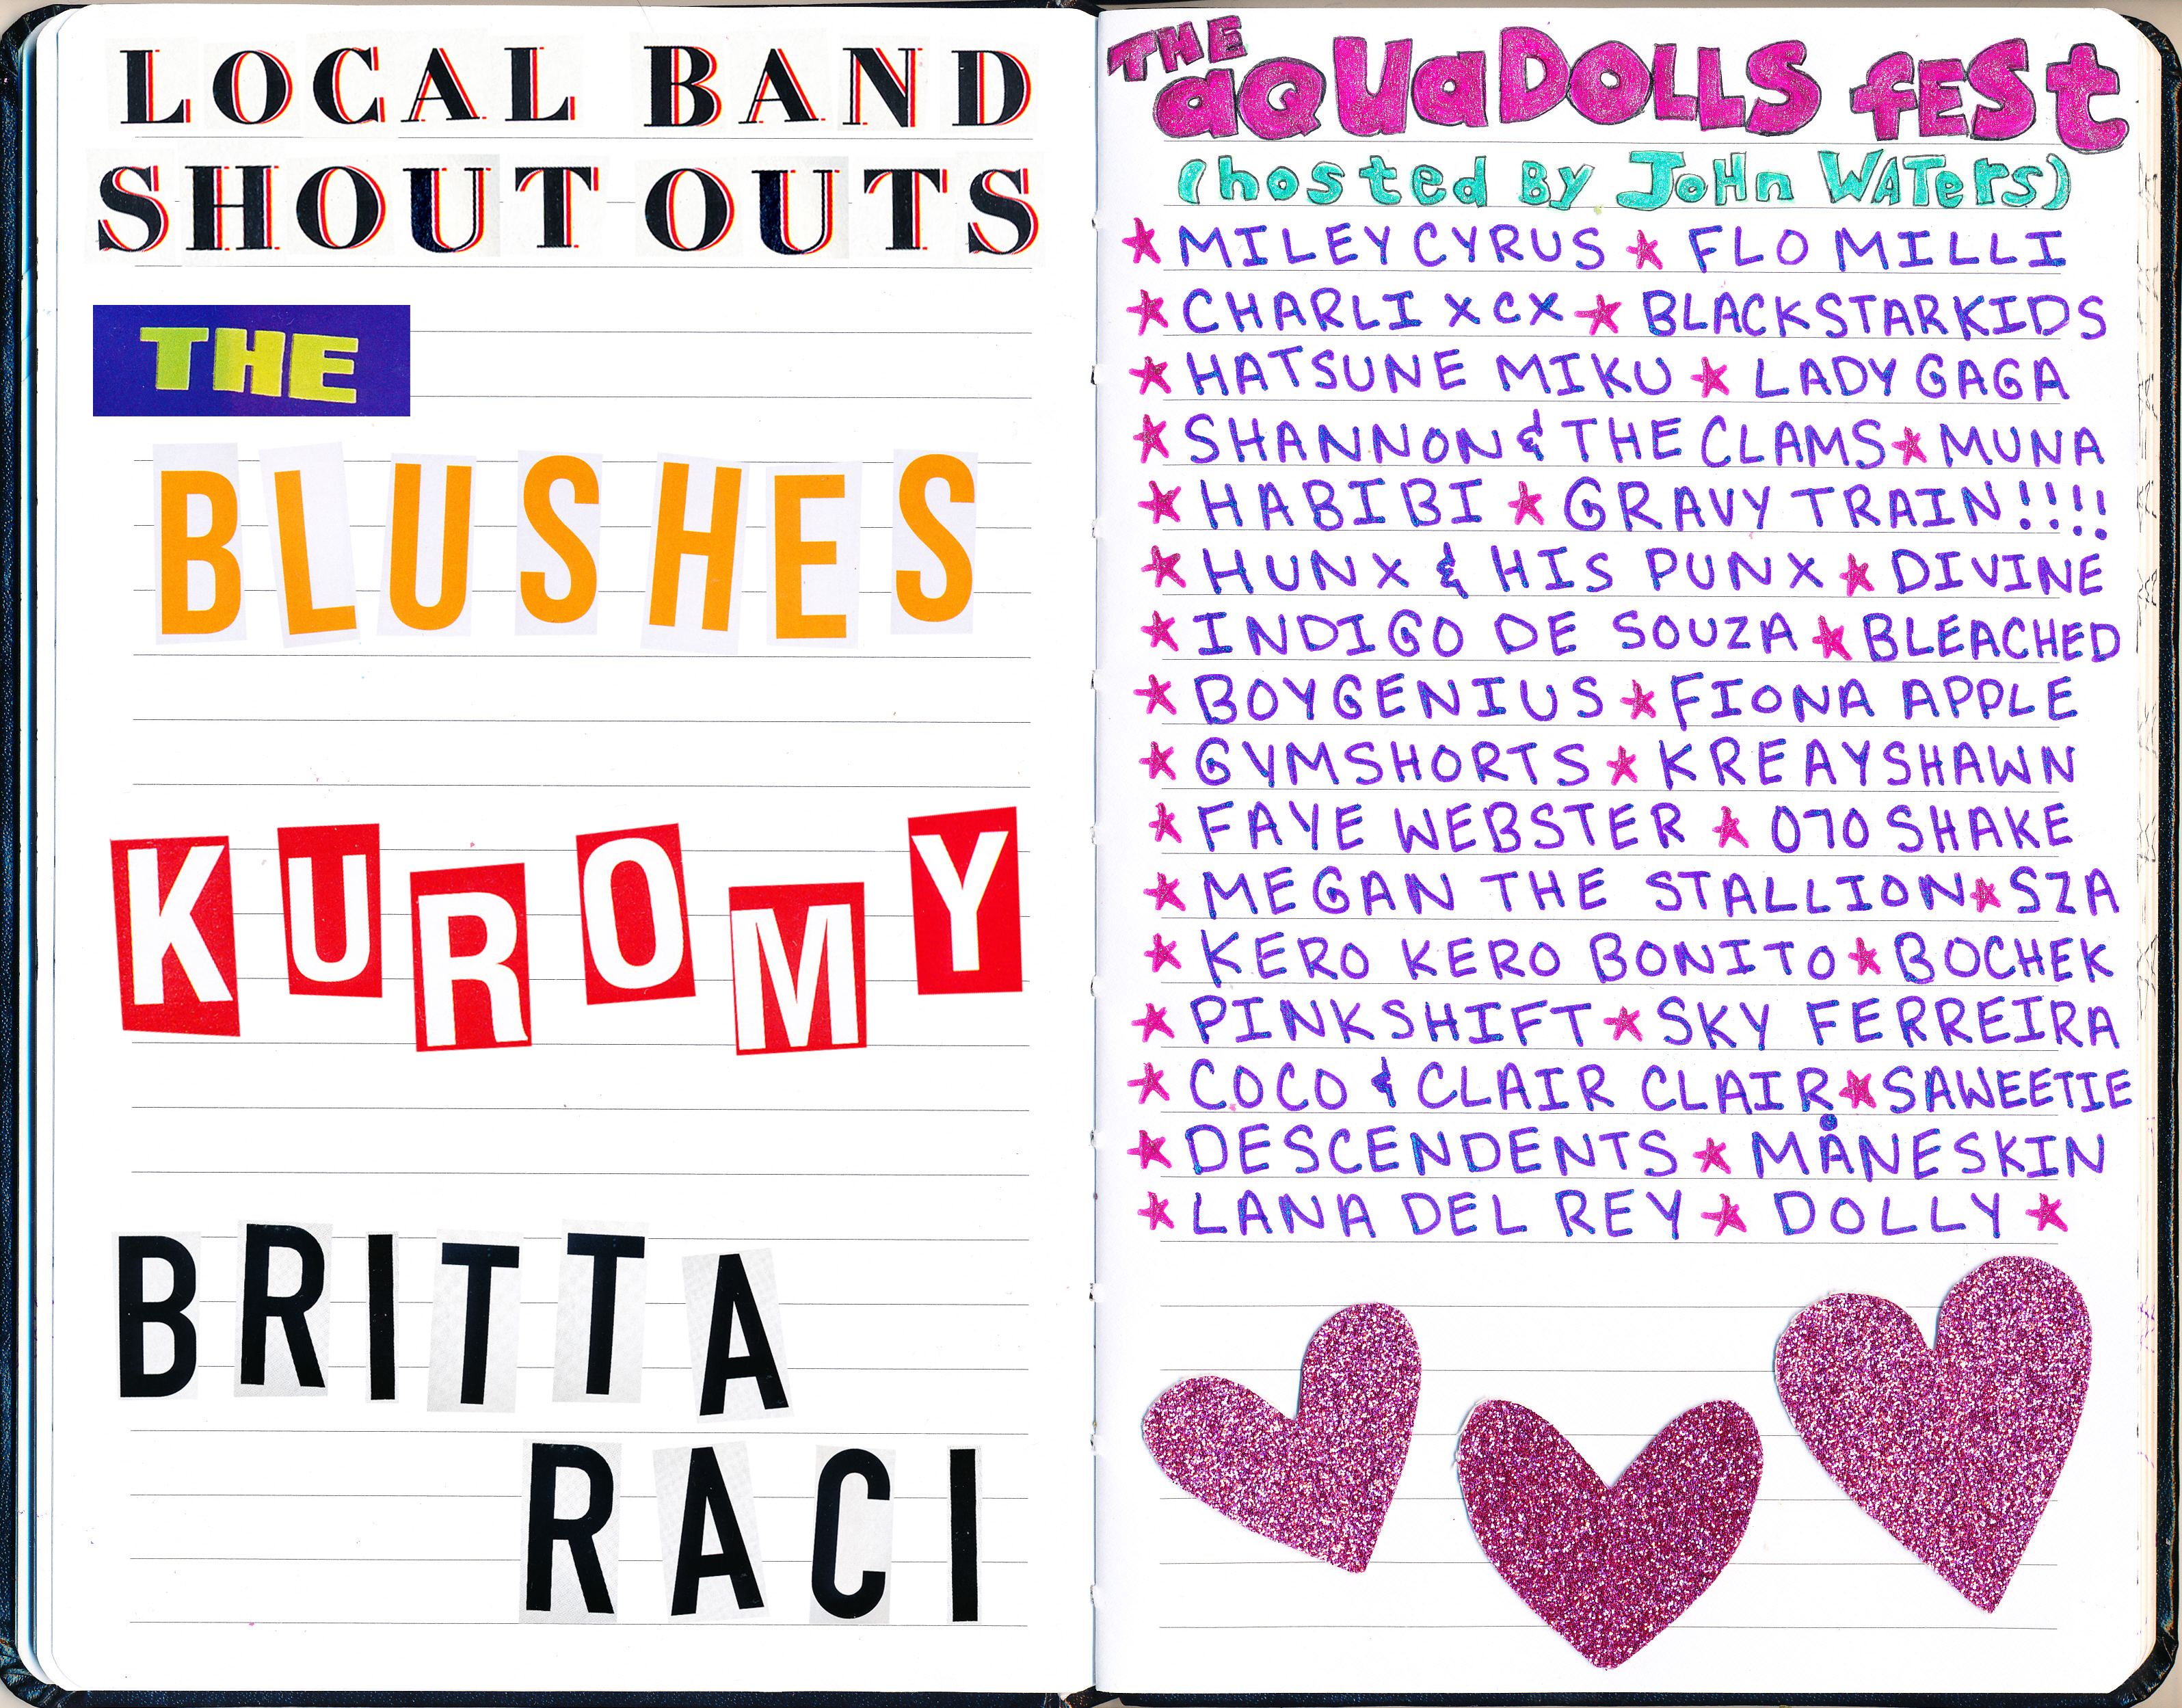 LOCAL BAND
SHOUT OUTS
THE
BLUSHES
KUROMY
BRITTA
RACI
THE aQUaDOLLS fESt
(hosted By JoHn WATers)
★ MILEY CYRUS ★ FLO MILLI
★ CHARLI XCX ★ BLACKSTARKIDS
★ HATSUNE MIKU ★ LADY GAGA
★ SHANNON & THE CLAMS ★ MUNA
★ HABIBI ★ GRAVY TRAIN!!!!
★ HUNX & HIS PUNX ★ DIVINE
★ INDIGO DE SOUZA ★ BLEACHED
★ BOYGENIUS ★ FIONA APPLE
★ GYMSHORTS ★ KREAYSHAWN
★ FAYE WEBSTER ★ 070 SHAKE
★ MEGAN THE STALLION ★ SZA
★ KERO KERO BONITO ★ BOCHEK
★ PINKSHIFT ★ SKY FERREIRA
★ COCO & CLAIR CLAIR ★ SAWEETIE
★ DESCENDENTS ★ MÅNESKIN
★ LANA DEL REY ★ DOLLY ★